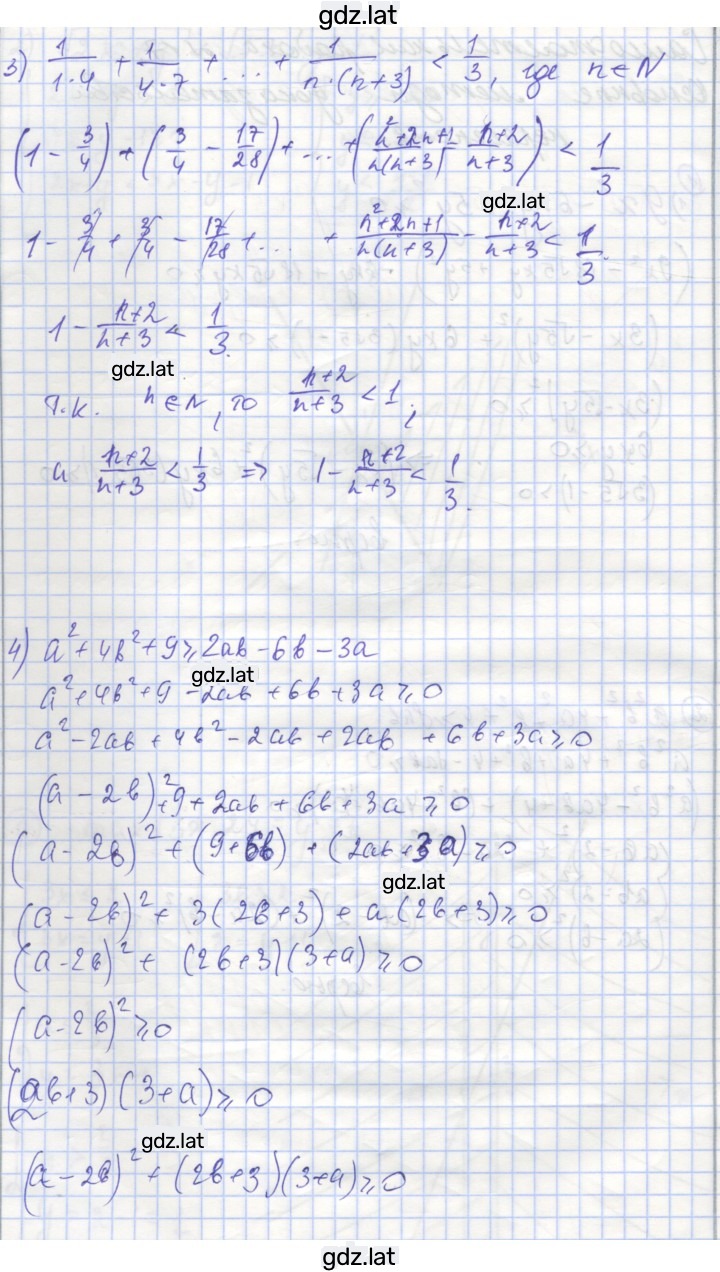 gdz.lat
3) 1/(1·4) + 1/(4·7) + ... + 1/(n·(n+3)) < 1/3, где n∈N
(1 - 3/4) + (3/4 - 17/28) + ... + ((n²+2n+1)/(n(n+3)) - (n+2)/(n+3)) < 1/3
gdz.lat
1 - 3/4 + 3/4 - 17/28 + ... + (n²+2n+1)/(n(n+3)) - (n+2)/(n+3) < 1/3.
1 - (n+2)/(n+3) < 1/3.
gdz.lat
Т.к. n∈N, то (n+2)/(n+3) < 1;
а (n+2)/(n+3) < 1/3 => 1 - (n+2)/(n+3) < 1/3.
4) a² + 4b² + 9 ⩾ 2ab - 6b - 3a
gdz.lat
a² + 4b² + 9 - 2ab + 6b + 3a ⩾ 0
a² - 2ab + 4b² - 2ab + 2ab + 6b + 3a ⩾ 0
(a - 2b)² + 9 + 2ab + 6b + 3a ⩾ 0
(a - 2b)² + (9 + 6b) + (2ab + 3a) ⩾ 0
gdz.lat
(a - 2b)² + 3(2b + 3) + a(2b + 3) ⩾ 0
(a - 2b)² + (2b + 3)(3 + a) ⩾ 0
(a - 2b)² ⩾ 0
(2b + 3)(3 + a) ⩾ 0
gdz.lat
(a - 2b)² + (2b + 3)(3 + a) ⩾ 0
gdz.lat